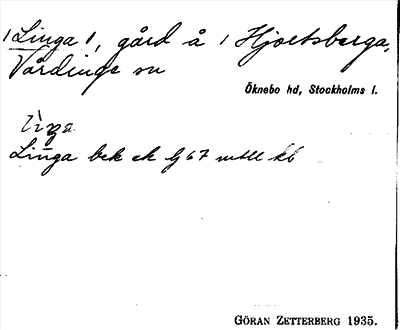 1 Linga 1, gård å 1 Hjortsberga,
Vårdinge sn
Öknebo hd, Stockholms l.
Linga bek ek
GÖRAN ZETTERBERG 1935.